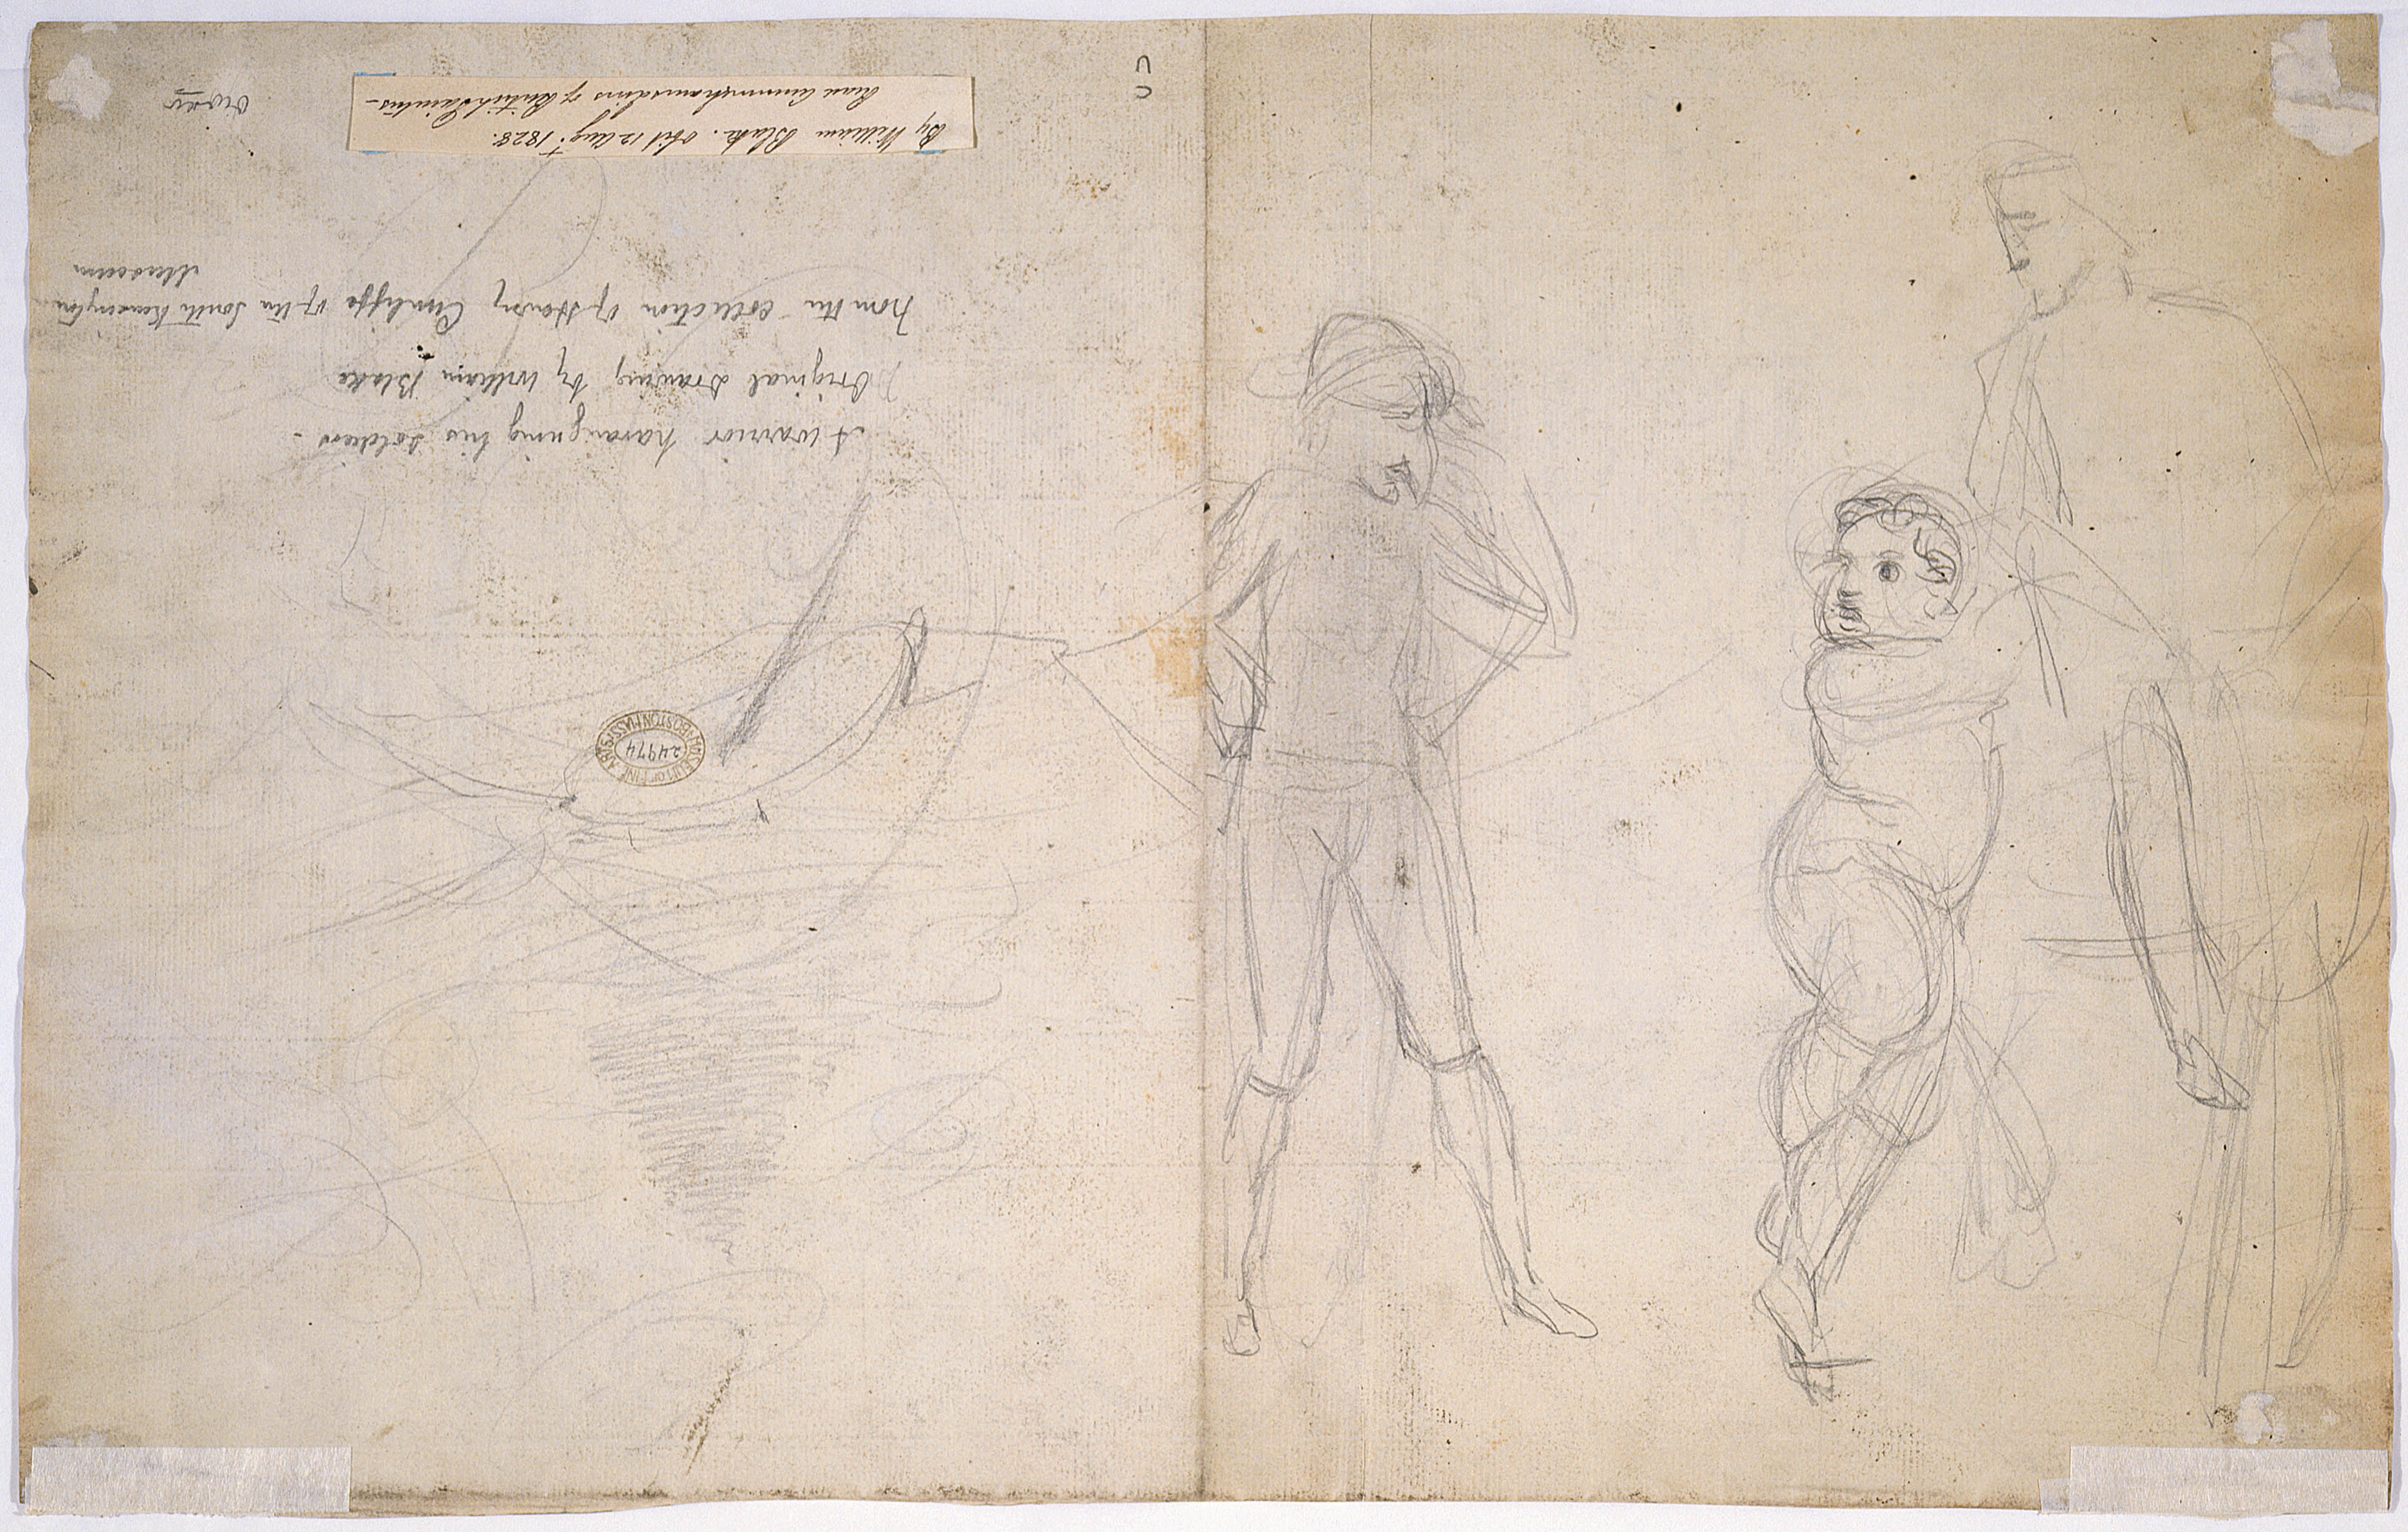 A warrior haranguing his soldiers -
Original Drawing by William Blake
From the collection of Henry Cunliffe of the South Kensington
Museum
By William Blake. obit 12 Aug.t 1828.
of British Painters -
MUSEUM OF FINE ARTS
BOSTON MASS
24974